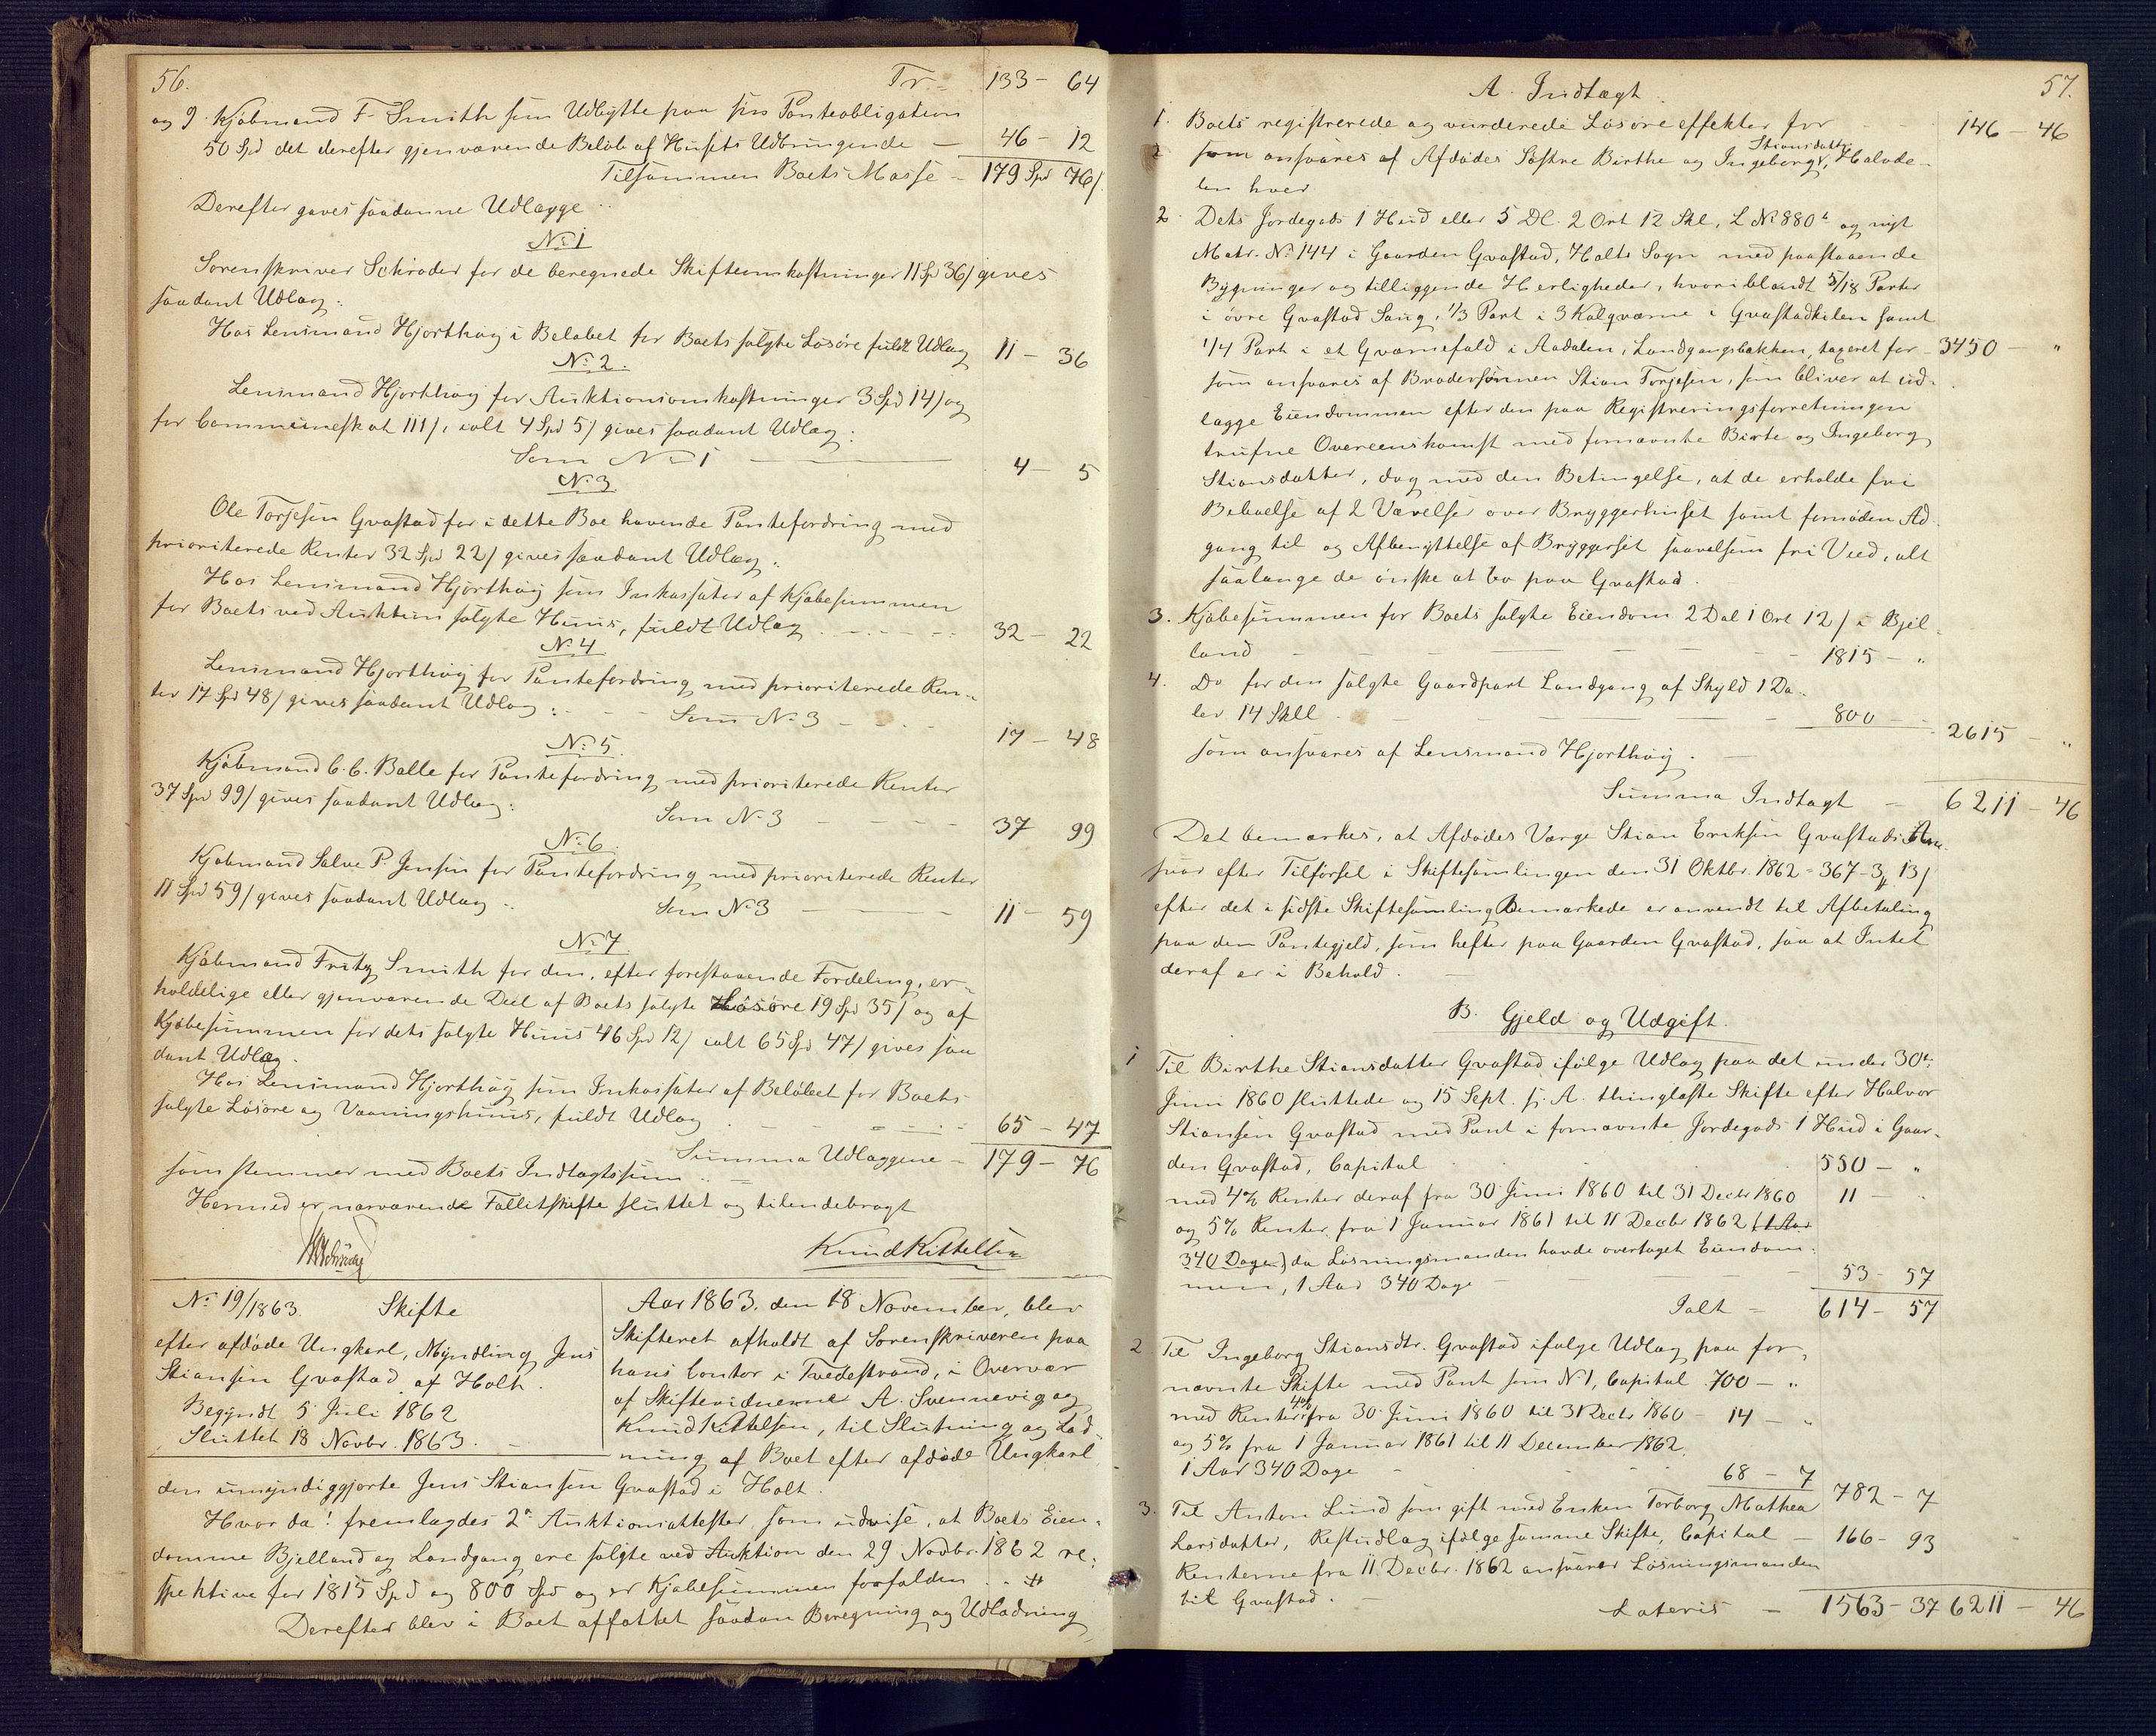 56.
Tr. 133 - 64
og 9. Kjøbmand F. Smith som Udbytte paa sin Panteobligation
50 Spd det derefter gjenværende Beløb af Husets Udbringende — 46 - 12
Tilsammen Boets Masse - 179 Spd 76/
Derefter gaves saadanne Udlægge
No 1
Sorenskriver Schrøder for de beregnede Skifteomkostninger 11 Spd 36/ gives
saadant Udlæg:
Hos Lensmand Hjorthøy i Beløbet for Boets solgte Løsøre fuldt Udlæg 11 - 36
No 2.
Lensmand Hjorthøy for Auktionsomkostninger 3 Spd 14/ og
for Communeskat 111/, ialt 4 Spd 5/ gives saadant Udlæg:
Som No 1 — 4 - 5
No 3
Ole Torjesen Gvastad for i dette Boe havende Pantefordring med
prioriterede Renter 32 Spd 22/ gives saadant Udlæg:
Hos Lensmand Hjorthøy som Inkassator af Kjøbesummen
for Boets ved Auktion solgte Huus, fuldt Udlæg - - - 32 - 22
No 4
Lensmand Hjorthøy for Pantefordring med prioriterede Ren-
ter 17 Spd 48/ gives saadant Udlæg: - - Som No 3 - - 17 - 48
No 5.
Kjøbmand C. C. Balle for Pantefordring med prioriterede Renter
37 Spd 99/ gives saadant Udlæg:
Som No 3 - - - - 37 99
No 6.
Kjøbmand Salve P. Jensen for Pantefordring med prioriterede Renter
11 Spd 59/ gives saadant Udlæg: Som No 3 — 11 - 59
No 7.
Kjøbmand Fritz Smith for den, efter forestaaende Fordeling, er-
holdelige eller gjenværende Deel af Boets solgte Løsøre 19 Spd 35/ og af
Kjøbesummen for dets solgte Huus 46 Spd 12/ ialt 65 Spd 47/ gives saa
dant Udlæg.
Hos Lensmand Hjorthøy som Inkassator af Beløbet for Boets
solgte Løsøre og Vaaningshuus, fuldt Udlæg - - - 65 - 47
Summa Udlæggene - 179 - 76
som stemmer med Boets Indtægtssum.
Hermed er nærværende Fallitskifte sluttet og tilendebragt
Schrøder
Knud Kittelsen
No 19/1863. Skifte
efter afdøde Ungkarl, Myndling Jens
Stiansen Gvastad af Holt.
Begyndt 5 Juli 1862
Sluttet 18 Novbr. 1863.
Aar 1863, den 18 November, blev
Skifteret afholdt af Sorenskriveren paa
hans Contor i Tvedestrand, i Overvær
af Skiftevidnerne A. Svennevig og
Knud Kittelsen, til Slutning og Lod-
ning af Boet efter afdøde Ungkarl
den umyndiggjorte Jens Stiansen Gvastad i Holt.
Hvor da! fremlagdes 2de Auktionsattester som udvise, at Boets Eien-
domme Bjelland og Landgang ere solgte ved Auktion den 29 Novbr. 1862 re-
spektive for 1815 Spd og 800 Spd og er Kjøbesummen forfalden.
Derefter blev i Boet affattet saadan Beregning og Udlodning
57.
A. Indtægt.
1. Boets registrerede og vurderede Løsøre effekter for 146 - 46
Stiansdatter
som ansvares af Afdødes Søstre Birthe og Ingeborg, Halvde-
len hver
2. Dets Jordegods 1 Hud eller 5 Dl. 2 Ort 12 Skl, L No 880 og nyt
Matr. No 144 i Gaarden Gvastad, Holts Sogn med paastaaende
Bygninger og tilliggende Herligheder, hvoriblandt 5/18 Parter
i øvre Gvastad Saug, 1/3 Part i 3 Kalqværne i Gvastadkilen samt
1/4 Part i et Qværnefald i Aadalen, Landgangsbakken, taxeret for - 3450 - "
som ansvares af Brodersønnen Stian Torjesen, som bliver at ud-
lægge Eiendommen efter den paa Registreringsforretningen
trufne Overeenskomst med fornævnte Birte og Ingeborg
Stiansdatter, dog med den Betingelse, at de erholde fri
Beboelse af 2 Værelser over Bryggerhuset samt fornøden Ad
gang til og Afbenyttelse af Bryggerset saavelsom fri Ved, alt
saalænge de ønske at bo paa Gvastad.
3. Kjøbesummen for Boets solgte Eiendom 2 Dal 1 Ort 12/ i Bjel-
land - - - - 1815 - "
4. Do for den solgte Gaardpart Landgang af Skyld 1 Da-
ler 14 Skll - - - 800 - 2615 - "
som ansvares af Lensmand Hjorthøy.
Summa Indtægt - 6211 - 46
Det bemærkes, at Afdødes Værge Stian Eriksen Gvastads An-
svar efter Tilførsel i Skiftesamlingen den 31 Oktbr. 1862 - 367 - 3 13/
efter det i sidste Skiftesamling Bemærkede er anvendt til Afbetaling
paa den Pantegjeld, som hefter paa Gaarden Gvastad, saa at Intet
deraf er i Behold.
B. Gjeld og Udgift.
1 Til Birthe Stiansdatter Gvastad ifølge Udlæg paa det under 30te
Juni 1860 sluttede og 15 Sept. s. A. thinglæste Skifte efter Halvor
Stiansen Gvastad med Pant i fornævnte Jordegods 1 Hud i Gaar-
den Gvastad, Capital 550 - "
med 4% Renter deraf fra 30 Juni 1860 til 31 Decbr 1860 11 - "
og 5% Renter fra 1 Januar 1861 til 11 Decbr 1862 (1 Aar
340 Dage) da Løsningsmanden havde overtaget Eiendom-
men, 1 Aar 340 Dage - - 53 - 57
Ialt - 614 - 57
2. Til Ingeborg Stiansdtr. Gvastad ifølge Udlæg paa for-
nævnte Skifte med Pant som No 1, Capital 700 - "
med Renter 4% fra 30 Juni 1860 til 31 Decbr 1860 - 14 - "
og 5% fra 1 Januar 1861 til 11 December 1862,
1 Aar 340 Dage - - 68 - 7 782 - 7
3. Til Anton Lund som gift med Enken Torborg Mathea
Larsdatter, Restudlæg ifølge samme Skifte, Capital — 166 - 93
Renterne fra 11 Decbr. 1862 ansvarer Løsningsmanden
til Gvastad.
Lateris — 1563 - 37 6211 - 46